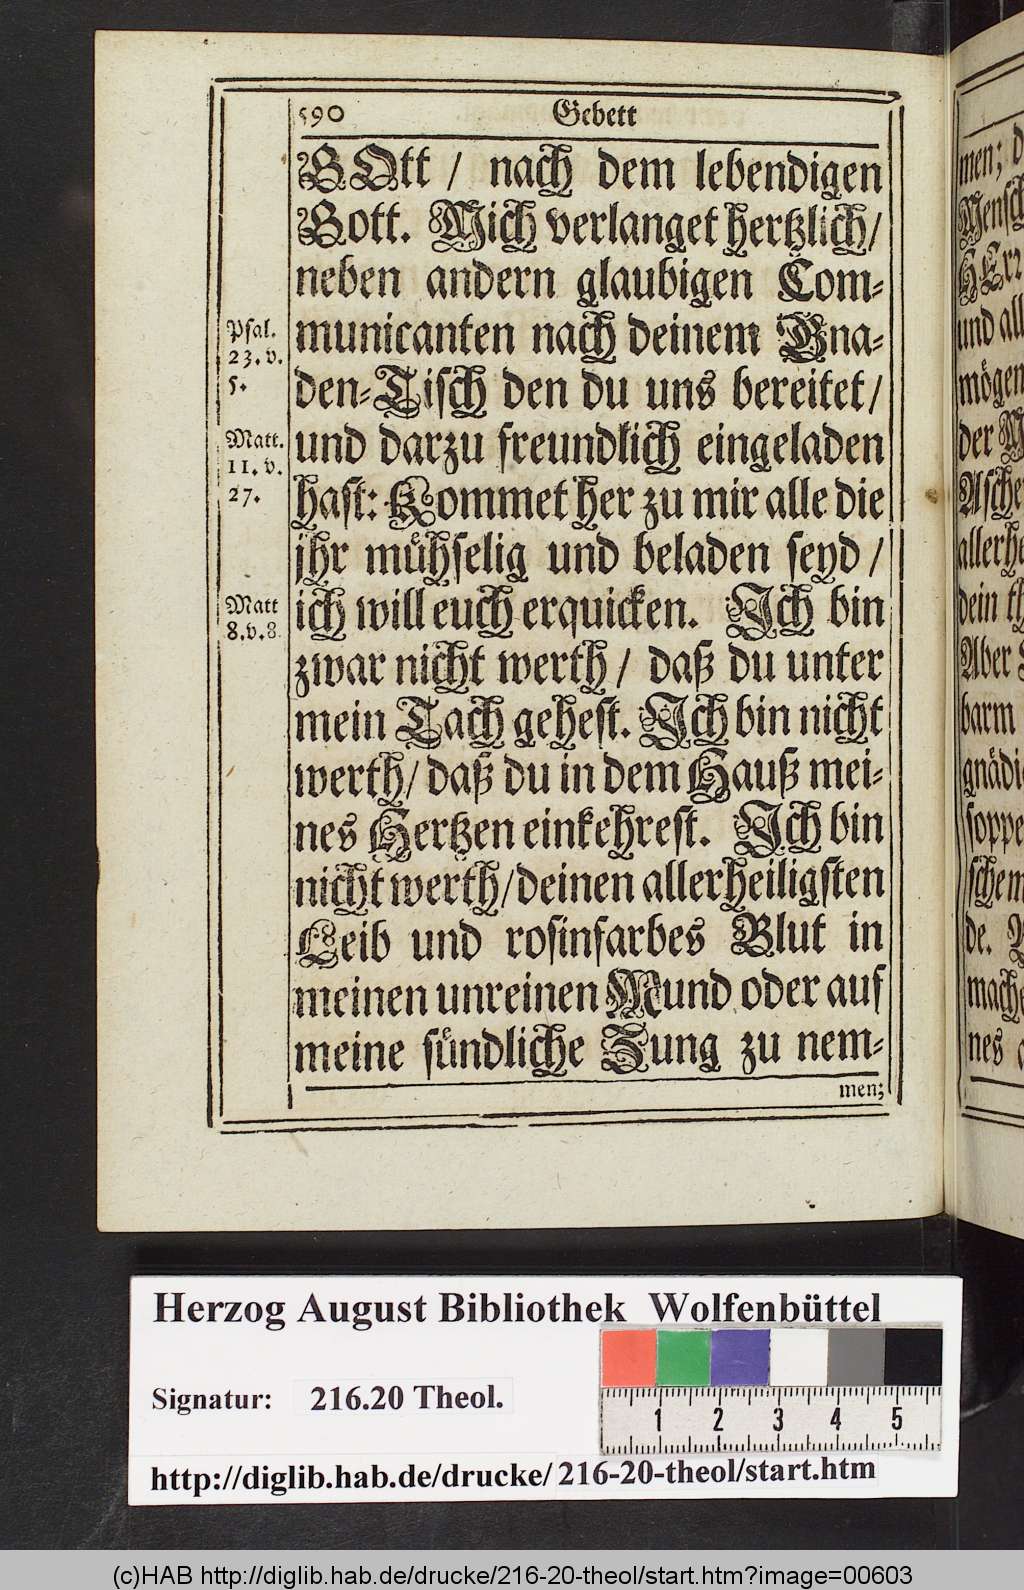 590 Gebett
GOtt / nach dem lebendigen
Gott. Mich verlanget hertzlich /
neben andern glaubigen Com-
municanten nach deinem Gna-
den-Tisch den du uns bereitet /
und darzu freundlich eingeladen
hast: Kommet her zu mir alle die
jhr mühselig und beladen seyd /
ich will euch erquicken. Ich bin
zwar nicht werth / daß du unter
mein Tach gehest. Ich bin nicht
werth / daß du in dem Hauß mei-
nes Hertzen einkehrest. Ich bin
nicht werth / deinen allerheiligsten
Leib und rosinfarbes Blut in
meinen unreinen Mund oder auf
meine sündliche Zung zu nem-
men;
Psal.
23. v.
5.
Matt.
11. v.
27.
Matt
8. v. 8.
men; d
Mensch
HErr
und all
mögen
der
Asche
allerhe
dein th
Aber
barm
gnädi
soppe
schem
de.
mache
nes
Herzog August Bibliothek Wolfenbüttel
Signatur: 216.20 Theol.
1 2 3 4 5
http://diglib.hab.de/drucke/216-20-theol/start.htm
(c)HAB http://diglib.hab.de/drucke/216-20-theol/start.htm?image=00603